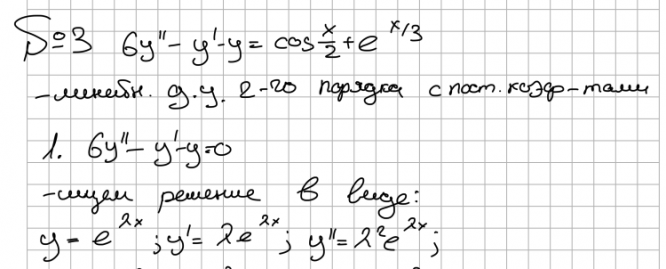 №3 6y'' - y' - y = cos x/2 + e^{x/3}
- линейн. д.у. 2-го порядка с пост. коэф-тами
1. 6y'' - y' - y = 0
- ищем решение в виде:
y = e^{λx}; y' = λe^{λx}; y'' = λ²e^{λx};